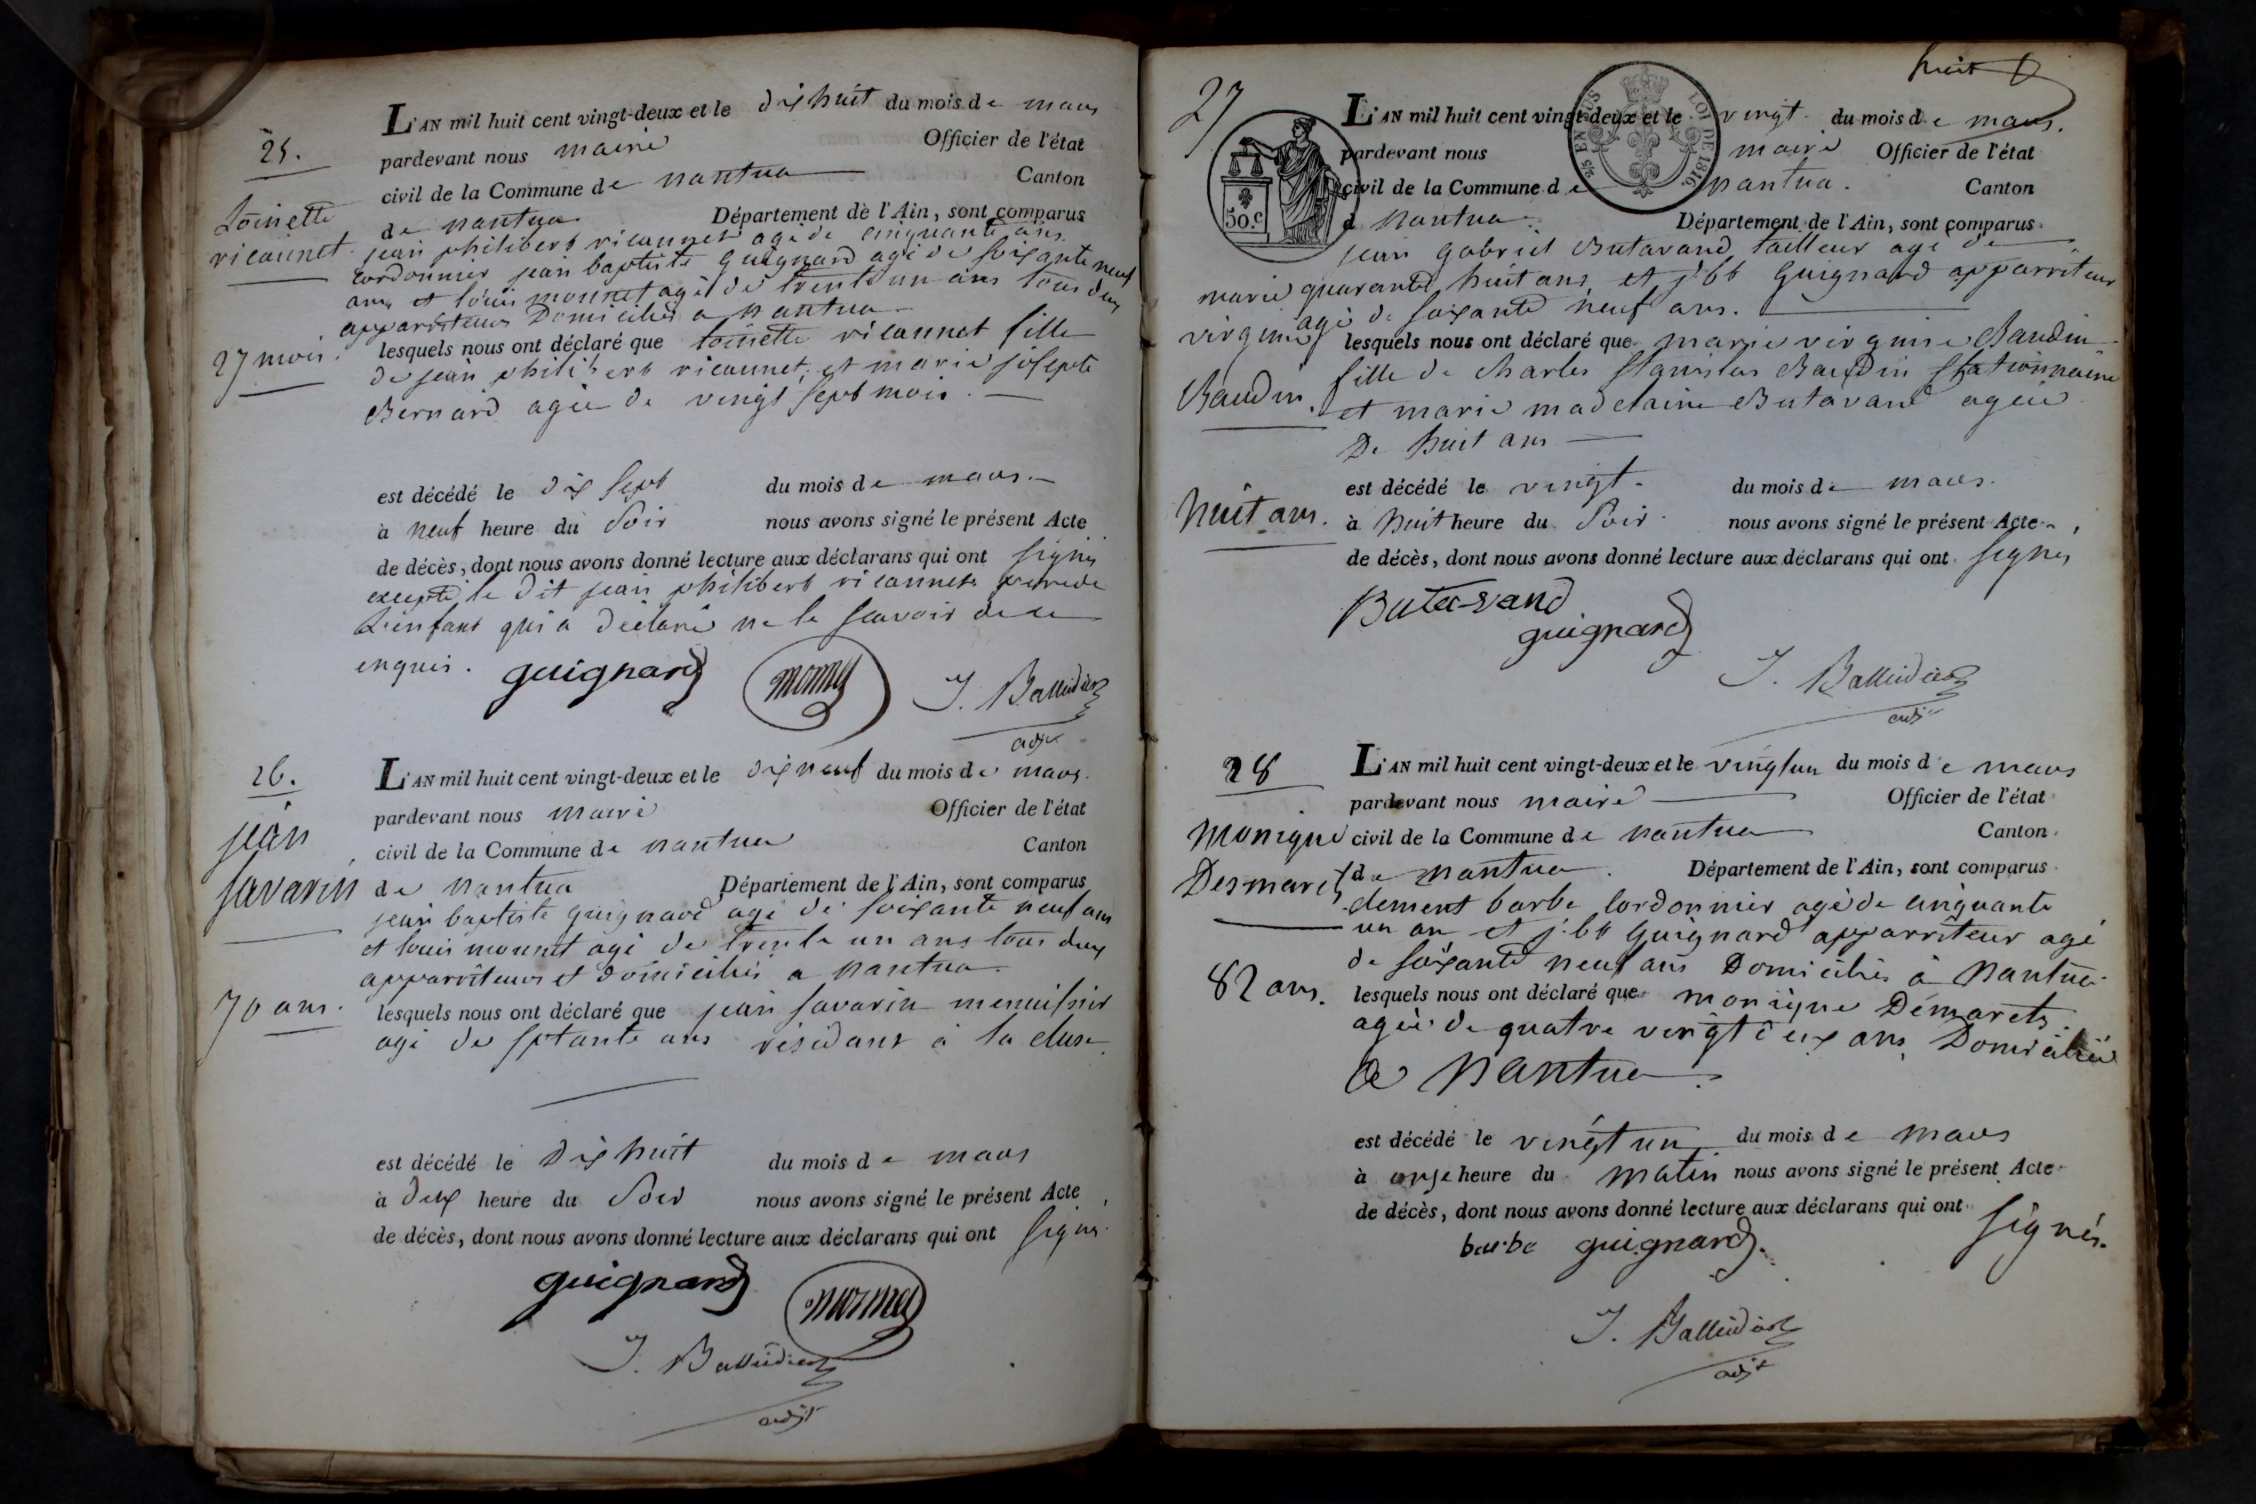 25.
Toinette
ricannet
27 mois.
L'AN mil huit cent vingt-deux et le dix huit du mois de mars
pardevant nous maire Officier de l'état
civil de la Commune de nantua Canton
de nantua Département de l'Ain, sont comparus
jean philibert ricannet agé de cinquante ans
cordonnier jean baptiste Guignard agé de soixante neuf
ans et louis monnet agé de trente un ans tous deux
apparriteurs Domiciliés a nantua
lesquels nous ont déclaré que toinette ricannet fille
de jean philibert ricannet et marie josepte
Bernard agée de vingt sept mois.
est décédé le dix sept du mois de mars.
à neuf heure du Soir nous avons signé le présent Acte
de décès, dont nous avons donné lecture aux déclarans qui ont signés
excepté le dit jean philibert ricannet pere de
L'enfant qui a déclaré ne le scavoir de ce
enquis. guignard monnet J. Balleidier
adjt
26.
jean
savarin
70 ans.
L'AN mil huit cent vingt-deux et le dix neuf du mois de mars.
pardevant nous maire Officier de l'état
civil de la Commune de nantua Canton
de nantua Département de l'Ain, sont comparus
jean baptiste guignard agé de soixante neuf ans
et louis monnet agé de trente un ans tous deux
apparriteurs et domiciliés a nantua.
lesquels nous ont déclaré que jean savarin menuisier
agé de septante ans résidant à la cluse
est décédé le Dix huit du mois de mars
à deux heure du Soir nous avons signé le présent Acte,
de décès, dont nous avons donné lecture aux déclarans qui ont signé.
guignard monnet
J. Balleidier
adjt
huit
27
50.c
EN SUS
LOI DE 1816.
marie
virginie
Baudin.
huit ans.
L'AN mil huit cent vingt-deux et le vingt du mois de mars.
pardevant nous maire Officier de l'état
civil de la Commune de nantua. Canton
d nantua Département de l'Ain, sont comparus
jean gabriel Butavand tailleur agé de
quarante huit ans, et j.bt Guignard apparriteur
agé de soixante neuf ans.
lesquels nous ont déclaré que marie virginie Baudin
fille de Charles Stanislas Baudin stationnaire
et marie madelaine Butavand agée
De huit ans
est décédé le vingt du mois de mars.
à huit heure du Soir nous avons signé le présent Acte,
de décès, dont nous avons donné lecture aux déclarans qui ont signés
Butavand
guignard
J. Balleidier
adjt
28
monique
Desmarets
82 ans.
L'AN mil huit cent vingt-deux et le vingt un du mois de mars
pardevant nous maire Officier de l'état
civil de la Commune de nantua Canton
de nantua. Département de l'Ain, sont comparus
clement barbe cordonnier agé de cinquante
un an et j.bt Guignard apparriteur agé
de soixante neuf ans Domiciliés à Nantua.
lesquels nous ont déclaré que monique Démarets
agée de quatre vingt deux ans Domiciliée
a Nantua.
est décédé le vingt un du mois de mars
à onze heure du matin nous avons signé le présent Acte
de décès, dont nous avons donné lecture aux déclarans qui ont signés.
barbe guignard.
J. Balleidier
adjt